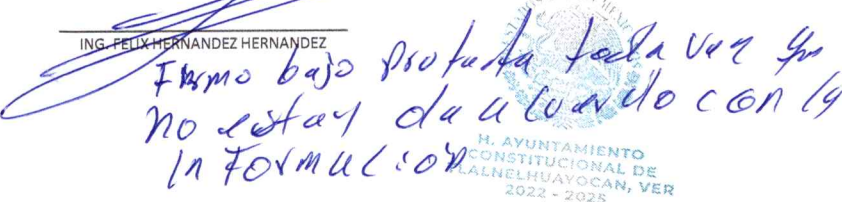 ING. FELIX HERNANDEZ HERNANDEZ
Firmo bajo protesta toda vez que
no estoy de acuerdo con la
InFormación
H. AYUNTAMIENTO
CONSTITUCIONAL DE
TLALNELHUAYOCAN, VER
2022 - 2025